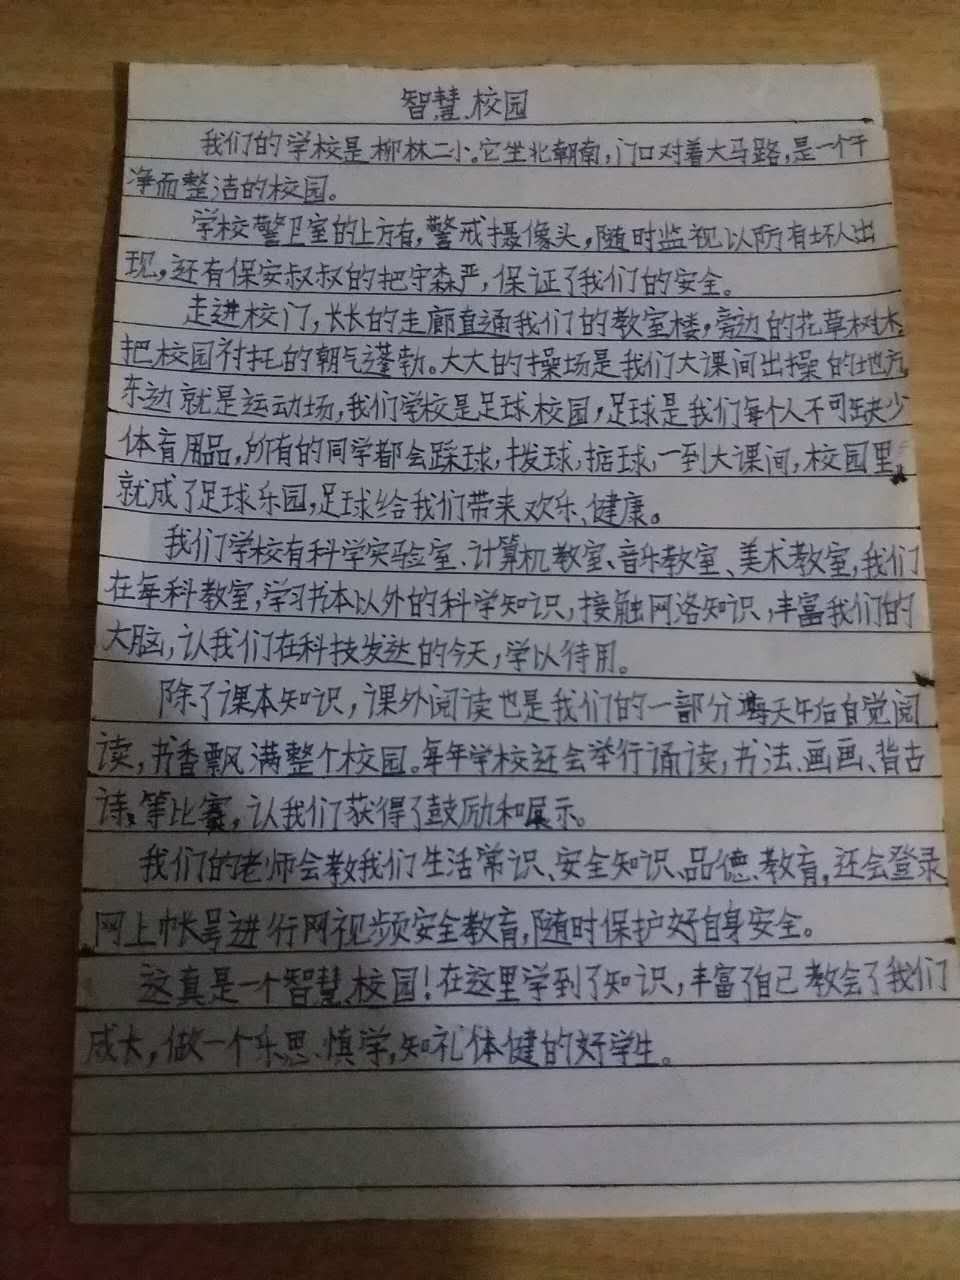 智慧校园
我们的学校是柳林二小。它坐北朝南,门口对着大马路,是一个干
净而整洁的校园。
学校警卫室的上方有,警戒摄像头,随时监视以防有坏人出
现,还有保安叔叔的把守森严,保证了我们的安全。
走进校门,长长的走廊直通我们的教室楼,旁边的花草树木
把校园衬托的朝气蓬勃。大大的操场是我们大课间出操的地方,
东边就是运动场,我们学校是足球校园,足球是我们每个人不可缺少
体育用品,所有的同学都会踩球,拨球,掂球,一到大课间,校园里
就成了足球乐园,足球给我们带来欢乐、健康。
我们学校有科学实验室、计算机教室、音乐教室、美术教室,我们
在每科教室,学习书本以外的科学知识,接触网洛知识,丰富我们的
大脑,认我们在科技发达的今天,学以待用。
除了课本知识,课外阅读也是我们的一部分每天午后自觉阅
读,书香飘满整个校园。每年学校还会举行诵读、书法、画画、背古
诗等比赛,认我们获得了鼓励和展示。
我们的老师会教我们生活常识、安全知识、品德教育,还会登录
网上帐号进行网视频安全教育,随时保护好自身安全。
这真是一个智慧校园!在这里学到了知识,丰富了自己教会了我们
成长,做一个乐思、慎学,知礼体健的好学生。